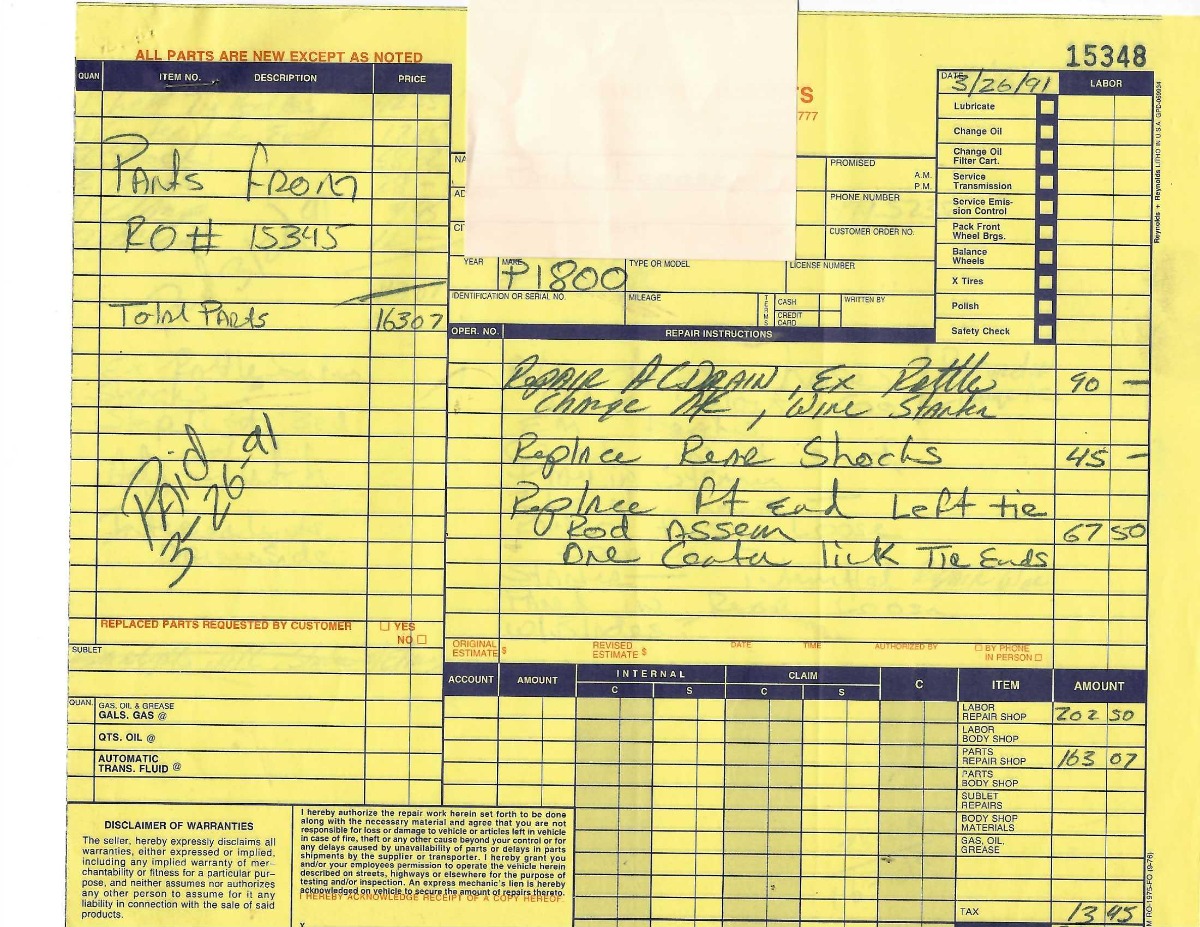 ALL PARTS ARE NEW EXCEPT AS NOTED
QUAN ITEM NO. DESCRIPTION PRICE
Parts From
RO# 15345
Total Parts 163 07
PAID
3-26-91
REPLACED PARTS REQUESTED BY CUSTOMER ☐ YES
NO ☐
SUBLET
QUAN. GAS, OIL & GREASE
GALS. GAS @
QTS. OIL @
AUTOMATIC
TRANS. FLUID @
DISCLAIMER OF WARRANTIES
The seller, hereby expressly disclaims all
warranties, either expressed or implied,
including any implied warranty of mer-
chantability or fitness for a particular pur-
pose, and neither assumes nor authorizes
any other person to assume for it any
liability in connection with the sale of said
products.
I hereby authorize the repair work herein set forth to be done
along with the necessary material and agree that you are not
responsible for loss or damage to vehicle or articles left in vehicle
in case of fire, theft or any other cause beyond your control or for
any delays caused by unavailability of parts or delays in parts
shipments by the supplier or transporter. I hereby grant you
and/or your employees permission to operate the vehicle herein
described on streets, highways or elsewhere for the purpose of
testing and/or inspection. An express mechanic's lien is hereby
acknowledged on vehicle to secure the amount of repairs thereto.
I HEREBY ACKNOWLEDGE RECEIPT OF A COPY HEREOF.
X
15348
S
777
NA
AD
CI
PROMISED
A.M.
P.M.
PHONE NUMBER
CUSTOMER ORDER NO.
YEAR MAKE TYPE OR MODEL LICENSE NUMBER
P1800
IDENTIFICATION OR SERIAL NO. MILEAGE TERMS CASH WRITTEN BY
CREDIT
CARD
DATE 3/26/91 LABOR
Lubricate
Change Oil
Change Oil
Filter Cart.
Service
Transmission
Service Emis-
sion Control
Pack Front
Wheel Brgs.
Balance
Wheels
X Tires
Polish
Safety Check
OPER. NO. REPAIR INSTRUCTIONS
Repair AC DRAIN, Ex Rattle 90 —
Charge AC, Wire Starter
Replace Rear Shocks 45 —
Replace Ft End Left tie
Rod Assem 67 50
One Center link Tie Ends
ORIGINAL
ESTIMATE $
REVISED
ESTIMATE $
DATE TIME AUTHORIZED BY ☐ BY PHONE
IN PERSON ☐
ACCOUNT AMOUNT INTERNAL CLAIM C ITEM AMOUNT
C S C S
LABOR
REPAIR SHOP 202 50
LABOR
BODY SHOP
PARTS
REPAIR SHOP 163 07
PARTS
BODY SHOP
SUBLET
REPAIRS
BODY SHOP
MATERIALS
GAS, OIL,
GREASE
TAX 13 45
Reynolds + Reynolds LITHO IN U.S.A. GPD-069934
M RO-1975-FO (9-78)